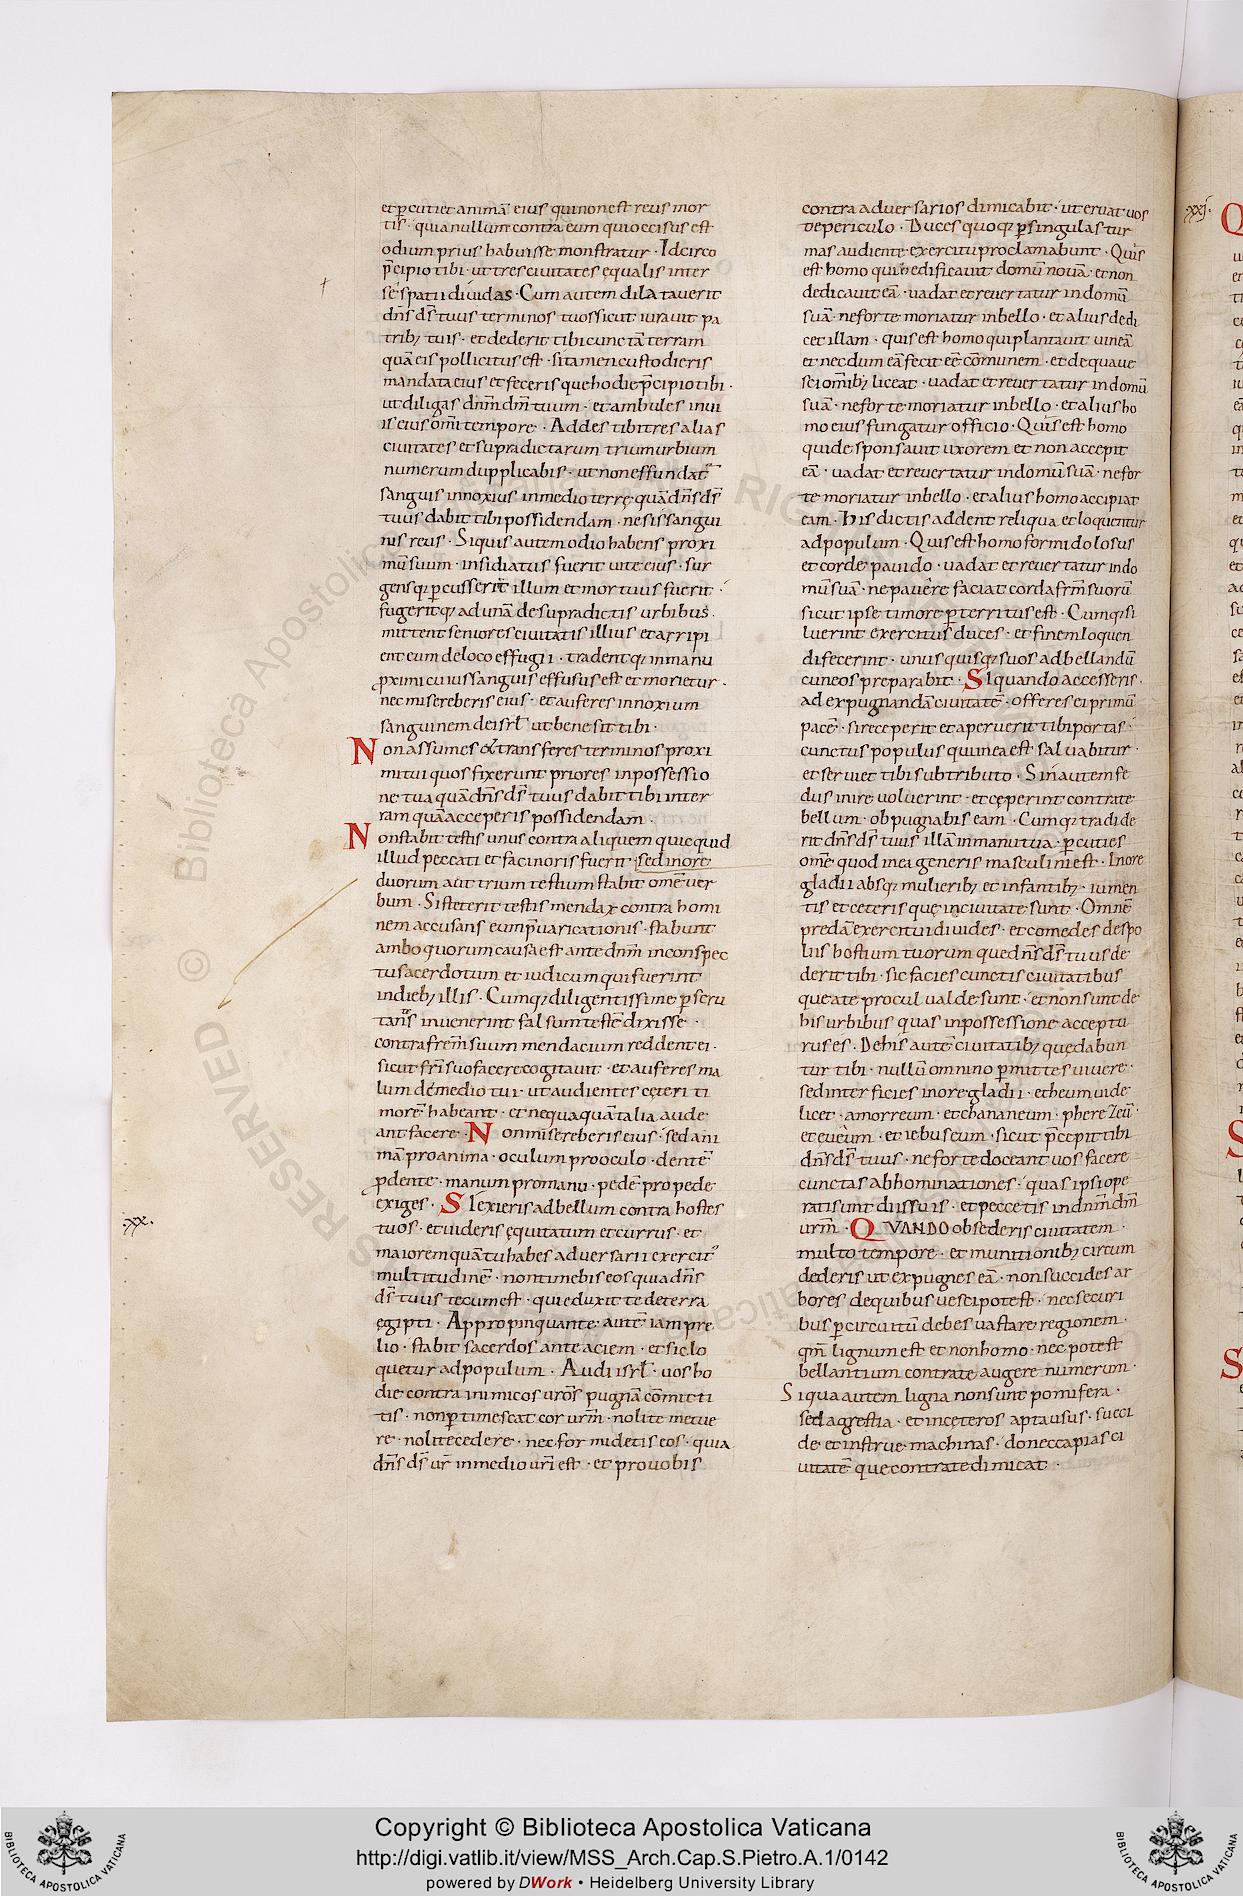 et p̄cutiet animā eius qui non est reus mor
tis · quia nullum contra eum qui occisus est
odium prius habuisse monstratur · Idcirco
p̄cipio tibi · ut tres civitates ęqualis inter
se spatii dividas · Cum autem dilataverit
dn̄s ds̄ tuus terminos tuos sicut iuravit pa
trib; tuis · et dederit tibi cunctā terram
quā eis pollicitus est · si tamen custodieris
mandata eius et feceris que hodie p̄cipio tibi ·
ut diligas dnm̄ dm̄ tuum · et ambules in vi
is eius om̄i tempore · Addes tibi tres alias
civitates et supradictarum trium urbium
numerum dupplicabis · ut non effundat᷑
sanguis innoxius in medio terrę quā dn̄s ds̄
tuus dabit tibi possidendam · ne sis sangui
nis reus · Siquis autem odio habens proxi
mū suum · insidiatus fuerit vite eius · sur
gensq; p̄cusserit illum et mortuus fuerit ·
fugeritq; ad unā de supradictis urbibus ·
mittent seniores civitatis illius et arripi
ent eum de loco effugii · tradentq; in manu
ꝓximi cuius sanguis effusus est et morietur ·
nec misereberis eius · et auferes innoxium
sanguinem de isrl̄ ut bene sit tibi ·
Non assumes & transferes terminos proxi
mi tui quos fixerunt priores in possessio
ne tua quā dn̄s ds̄ tuus dabit tibi in ter
ram quā acceperis possidendam ·
Non stabit testis unus contra aliquem quicquid
illud peccati et facinoris fuerit · sed in ore
duorum aut trium testium stabit om̄e ver
bum · Si steterit testis mendax contra homi
nem accusans eum p̄varicationis · stabunt
ambo quorum causa est ante dnm̄ in conspec
tu sacerdotum et iudicum qui fuerint
in dieb; illis · Cumq; diligentissime p̄scru
tan̄s invenerint falsum testē dixisse ·
contra frem̄ suum mendacium reddent ei ·
sicut fri̅ suo facere cogitavit · et auferes ma
lum de medio tui · ut audientes cęteri ti
morē habeant · et nequaquā talia aude
ant facere · Non misereberis eius · sed ani
mā pro anima · oculum pro oculo · dentē
ꝓ dente · manum pro manu · pedē pro pede
exiges · Si exieris ad bellum contra hostes
·xx·
tuos · et videris ęquitatum et currus · et
maiorem quā tu habes adversarii exercit᷒
multitudinē · non timebis eos quia dn̄s
ds̄ tuus tecum est · qui eduxit te de terra
ęgipti · Appropinquante autē iam pre
lio · stabit sacerdos ante aciem · et sic lo
quetur ad populum · Audi isrl̄ · vos ho
die contra inimicos vros̄ pugnā com̄itti
tis · non p̄timescat cor vrm̄ · nolite metue
re · nolite cedere · nec formidetis eos · quia
dn̄s ds̄ vr̄ in medio vri̅ est · et pro vobis
contra adversarios dimicabit · ut eruat vos
de periculo · Duces quoq; p̄ singulas tur
mas audiente exercitu proclamabunt · Quis
est homo qui hedificavit domū novā · et non
dedicavit eā · vadat et revertatur in domū
suā · ne forte moriatur in bello · et alius dedi
cet illam · quis est homo qui plantavit vineā
et necdum eā fecit eē com̄unem · et de qua ve
sci om̄ib; liceat · vadat et revertatur in domū
suā · ne forte moriatur in bello · et alius ho
mo eius fungatur officio · Quis est homo
qui desponsavit uxorem et non accepit
eā · vadat et revertatur in domū suā · ne for
te moriatur in bello · et alius homo accipiat
eam · His dictis addent reliqua et loquentur
ad populum · Quis est homo formidolosus
et corde pavido · vadat et revertatur in do
mū suā · ne pavere faciat corda frm̄ suorū
sicut ipse timore p̄territus est · Cumq; si
luerint exercitus duces · et finem loquen
di fecerint · unusquisq; suos ad bellandū
cuneos preparabit · Si quando accesseris ·
ad expugnandā civitatē · offeres ei primū
pacē · si receperit et aperuerit tibi portas ·
cunctus populus qui in ea est salvabitur ·
et serviet tibi sub tributo · Sin autem fe
dus inire voluerint · et cęperint contra te
bellum · obpugnabis eam · Cumq; tradide
rit dn̄s ds̄ tuus illā in manu tua · p̄cuties
om̄e quod in ea generis masculini est · In ore
gladii absq; mulierib; et infantib; · iumen
tis et ceteris quę in civitate sunt · Omnē
predā exercitui divides · et comedes de spo
liis hostium tuorum que dn̄s ds̄ tuus de
derit tibi · sic facies cunctis civitatibus
que a te procul valde sunt · et non sunt de
his urbibus quas in possessione acceptu
rus es · De his autē civitatib; quę dabun
tur tibi · nullū omnino p̄mittes vivere ·
sed interficies in ore gladii · etheum vide
licet · amorreum · et chananeum · pherezeū ·
et eveum · et iebuseum · sicut p̄cepit tibi
dn̄s ds̄ tuus · ne forte doceant vos facere
cunctas abhominationes · quas ipsi ope
rati sunt diis suis · et peccetis in dnm̄ dm̄
vrm̄ · QUANDO obsederis civitatem ·
multo tempore · et munitionib; circum
dederis ut expugnes eā · non succides ar
bores de quibus vesci potest · nec securi
bus p̄ circuitū debes vastare regionem ·
qm̄ lignum est et non homo · nec potest
bellantium contra te augere numerum ·
Si qua autem ligna non sunt pomifera ·
sed agrestia · et in cęteros apta usus · succi
de et instrue machinas · donec capias ci
vitatē que contra te dimicat ·
xxj·
Copyright © Biblioteca Apostolica Vaticana
http://digi.vatlib.it/view/MSS_Arch.Cap.S.Pietro.A.1/0142
powered by DWork • Heidelberg University Library